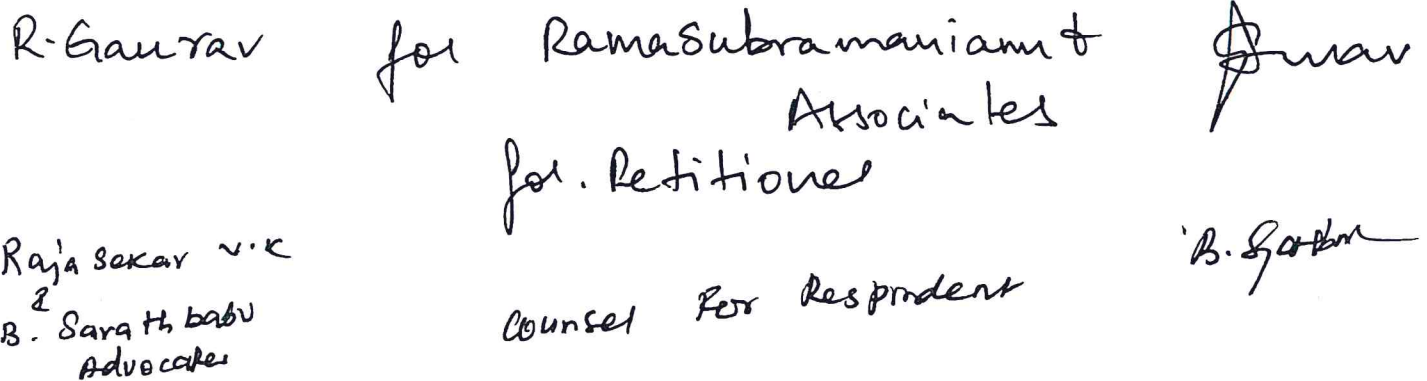 R. Gaurav for Ramasubramaniam &
Associates
for. Petitioner
Rajasekar V.K
&
B. Sarathbabu
Advocates
Counsel For Respondent
B.